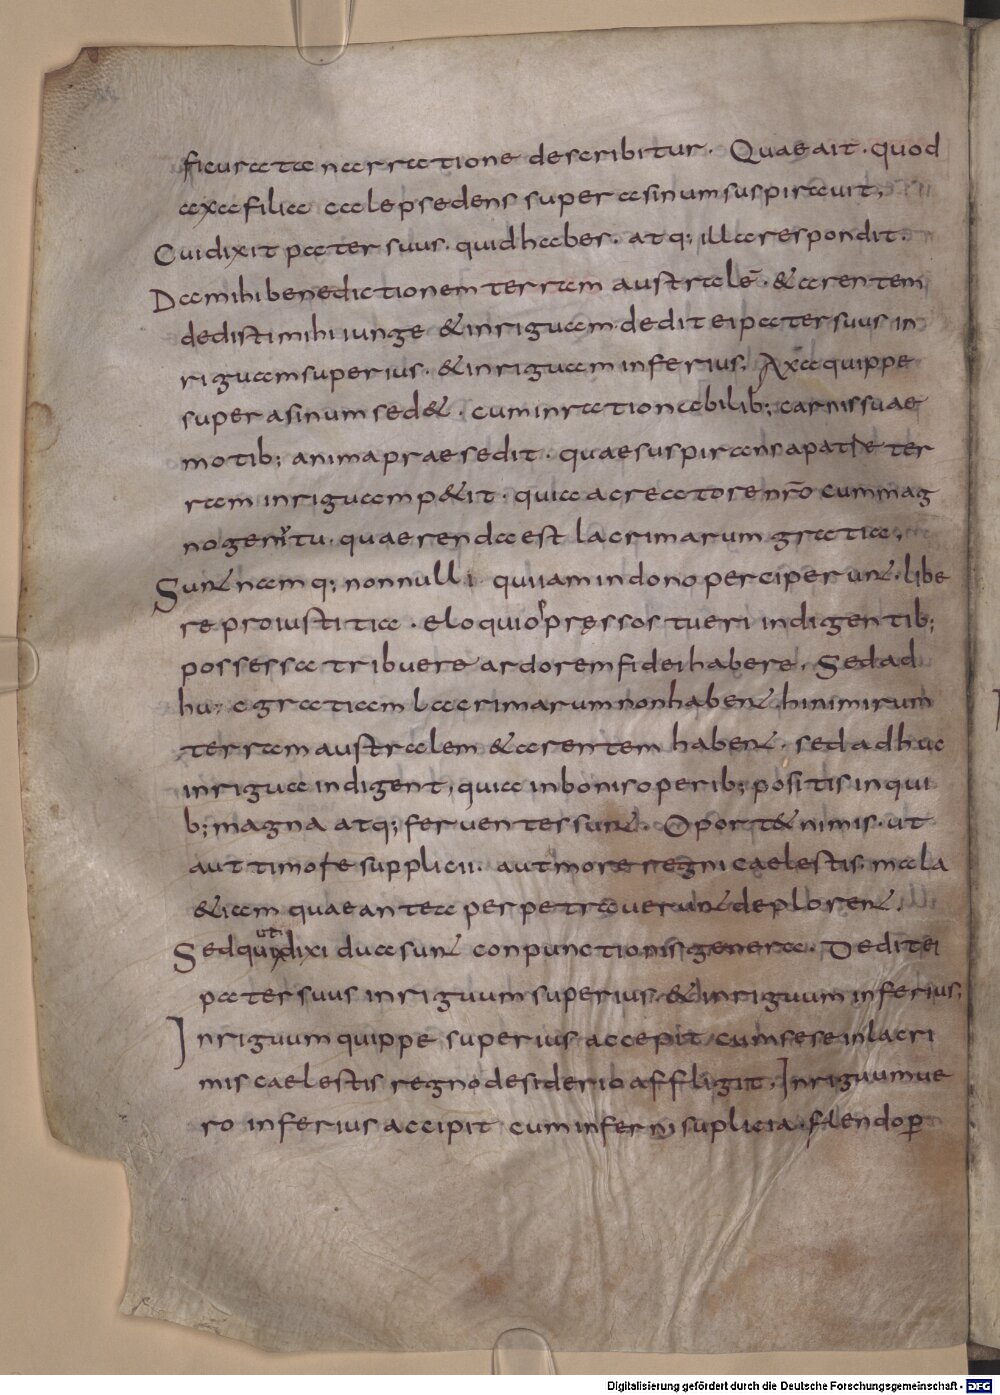 ficurata narratione describitur. Quae ait. quod
axa filia calep sedens super asinum suspirauit.
Cui dixit pater suus. quid habes. atq; illa respondit.
Da mihi benedictionem terram australē. & arentem
dedisti mihi iunge & inriguam. dedit ei pater suus in
riguam superius. & inriguam inferius. Axa quippe
super asinum sed&. cum inrationabilib; carnis suae
motib; anima praesedit. quae suspirans a patre ter
ram inriguam p&it. quia a creatore nr̄o cum mag
no gemitu. quaerenda est lacrimarum gratia.
Sunt namq; nonnulli quiiam in dono perciperunt. libe
re pro iustitia. eloquio prȩssos tueri indigentib;
possessa tribuere ardorem fidei habere. Sed ad
huc gratiam lacrimarum non habent. hi nimirum
terram australem & arentem habent. sed adhuc
inrigua indigent, quia in bonis operib; positis in qui
b; magna atq; feruenter sunt. Oport& nimis. ut
aut timore supplicii. aut more regni caelestis. mala
&iam quae antea perpetrauerunt deplorent.
Sed quia ut dixi dua sunt conpunctionis genera. Dedit ei
pater suus inriguum superius. & inriguum inferius;
Inriguum quippe superius accepit cum sese in lacri
mis caelestis regno desiderio affligit. Inriguum ue
ro inferius accipit cum inferni suplicia. flendo ꝑ
Digitalisierung gefördert durch die Deutsche Forschungsgemeinschaft - DFG